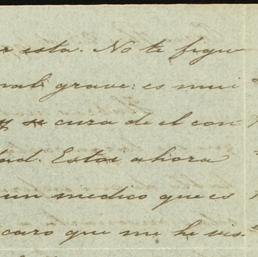 r esta. No te figu
mal grave: es mui
y se cura de el con
dad. Estoi ahora
un medico que es
caro que me ha vis-